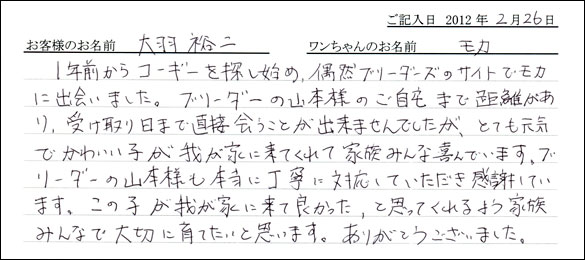 ご記入日 2012 年 2 月 26 日
お客様のお名前 大羽 裕二 ワンちゃんのお名前 モカ
1年前からコーギーを探し始め、偶然ブリーダーズのサイトでモカ
に出会いました。ブリーダーの山本様のご自宅まで距離があ
り、受け取り日まで直接会うことが出来ませんでしたが、とても元気
でかわいい子が我が家に来てくれて家族みんな喜んでいます。ブ
リーダーの山本様も本当に丁寧に対応していただき感謝してい
ます。この子が我が家に来て良かった、と思ってくれるよう家族
みんなで大切に育てたいと思います。ありがとうございました。